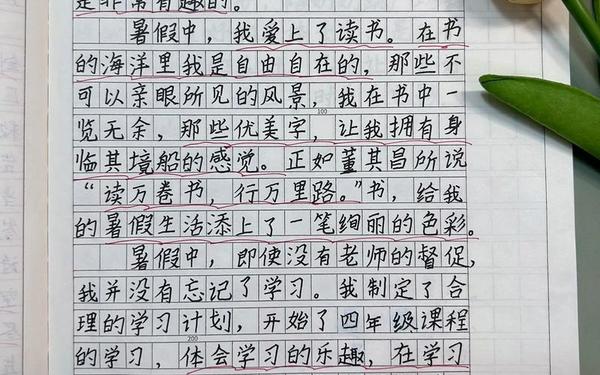 是非常有趣的。
暑假中，我爱上了读书。在书
的海洋里我是自由自在的，那些不
可以亲眼所见的风景，我在书中一
100
览无余，那些优美字，让我拥有身
临其境船的感觉。正如董其昌所说
“读万卷书，行万里路。”书，给我
的暑假生活添上了一笔绚丽的色彩。
暑假中，即使没有老师的督促，
我并没有忘记了学习。我制定了合
理的学习计划，开始了四年级课程
200
的学习，体会学习的乐趣，在学习